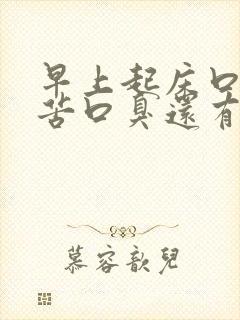 早上起床口
苦口臭還有
慕容歆兒